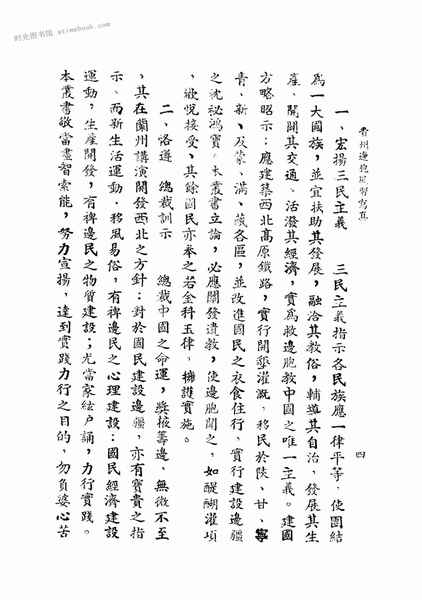 时光图书馆 etimebook.com
青州邊疆風習寫真
四
一、宏揚三民主義　三民主義指示各民族應一律平等，使團結
為一大國族，並宜扶助其發展，融洽其教俗，輔導其自治，發展其生
產，開闢其交通，活潑其經濟，實為救邊胞救中國之唯一主義。建國
方略昭示：應建築西北高原鐵路，實行開墾灌溉，移民於陝、甘、寧
青、新、及蒙、滿、藏各區，並改進國民之衣食住行，實行建設邊疆
之沈祕鴻寶。本叢書立論，必應闡發遺教，使邊胞聞之，如醍醐灌頂
，歡悅接受，其餘國民亦奉之若金科玉律，擁護實施。
二、恪遵　總裁訓示　總裁中國之命運，獎掖籌邊，無微不至
，其在蘭州講演開發西北之方針：對於國民建設邊疆，亦有寶貴之指
示、而新生活運動．移風易俗，有裨邊民之心理建設：國民經濟建設
運動，生產開發，有裨邊民之物質建設；尤當家絃户誦，力行實踐。
本叢書敬當盡智索能，努力宣揚，達到實踐力行之目的，勿負婆心苦